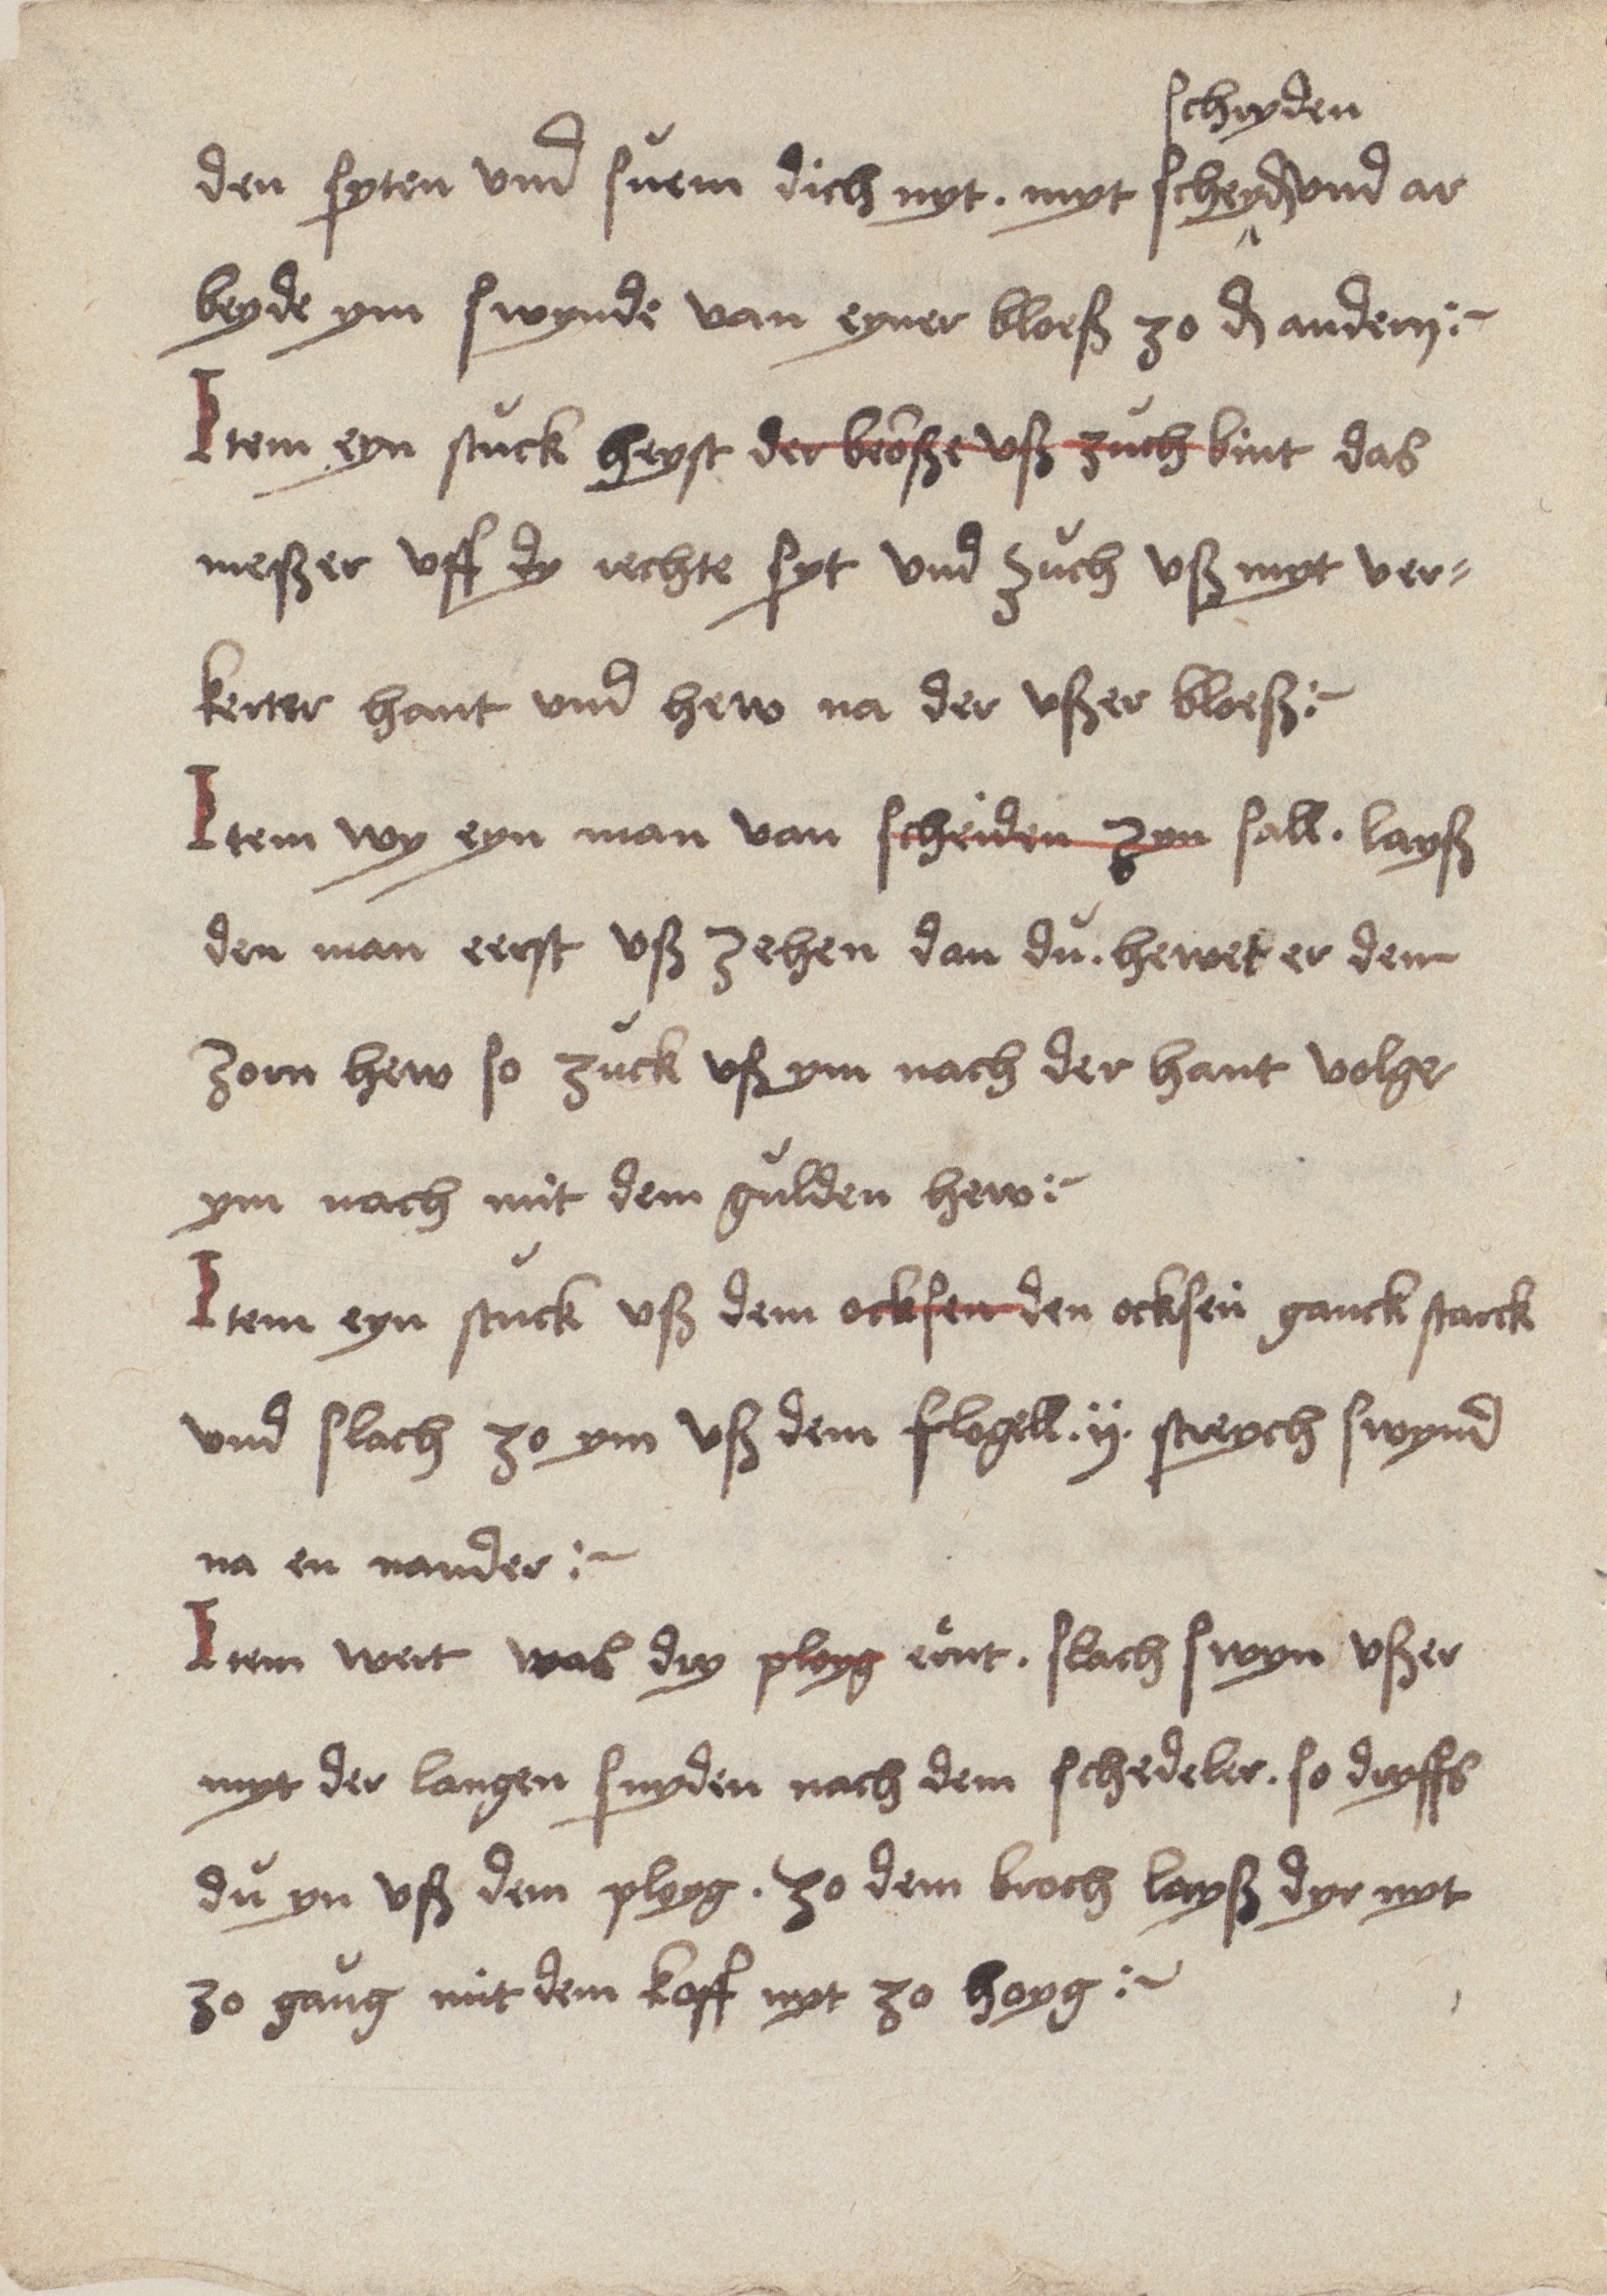 schryden
den syten vnd suem dich nyt . myt scheyd vnd ar
beyde ym swynde van eyner bloeß zo d andern :~
Item eyn stuck heyst der beoße vß zuch bint das
meßer vff dy rechte syt vnd zuch vß myt ver=
kerter hant vnd hew na der vßer bloeß :~
Item wy eyn man van scheiden zyn sall . layß
den man eerst vß zehen dan du . hewet er den
zorn hew so zuck vß ym nach der hant volge
ym nach mit dem gulden hew :~
Item eyn stuck vß dem ocksen den ocksen ganck starck
vnd slach zo ym vß dem flogell . ij . streych swynd
na en nander :~
Item wert was dry ployg ernt . slach swyn vßer
myt der langen snyden nach dem schedeler . so dryffs
du yn vß dem ployg . zo dem broch layß dyr nyt
zo gaug mit dem koff nyt zo hoyg :~